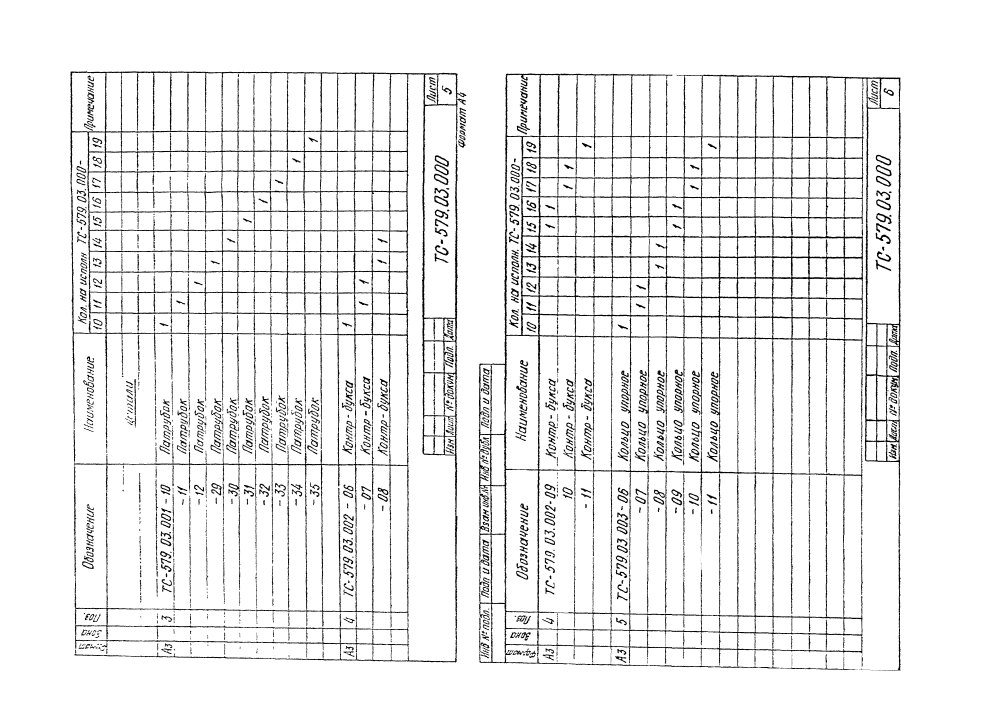 Формат Зона Поз. Обозначение Наименование Кол. на исполн. ТС-579.03.000- Примечание
10 11 12 13 14 15 16 17 18 19
Детали
А3 3 ТС-579.03.001-10 Патрубок 1
-11 Патрубок 1
-12 Патрубок 1
-29 Патрубок 1
-30 Патрубок 1
-31 Патрубок 1
-32 Патрубок 1
-33 Патрубок 1
-34 Патрубок 1
-35 Патрубок 1
А3 4 ТС-579.03.002-06 Контр-букса 1
-07 Контр-букса 1 1
-08 Контр-букса 1 1
Изм. Лист № докум. Подп. Дата
ТС-579.03.000
Лист
5
Формат А4
Инв № подл. Подп и дата Взам инв.№ Инв № дубл. Подп и дата
Формат Зона Поз. Обозначение Наименование Кол. на исполн. ТС-579.03.000- Примечание
10 11 12 13 14 15 16 17 18 19
А3 4 ТС-579.03.002-09 Контр-букса 1 1
10 Контр-букса 1 1
-11 Контр-букса 1
А3 5 ТС-579.03.003-06 Кольцо упорное 1
-07 Кольцо упорное 1 1
-08 Кольцо упорное 1 1
-09 Кольцо упорное 1 1
-10 Кольцо упорное 1 1
-11 Кольцо упорное 1
Изм. Лист № докум. Подп. Дата
ТС-579.03.000
Лист
6